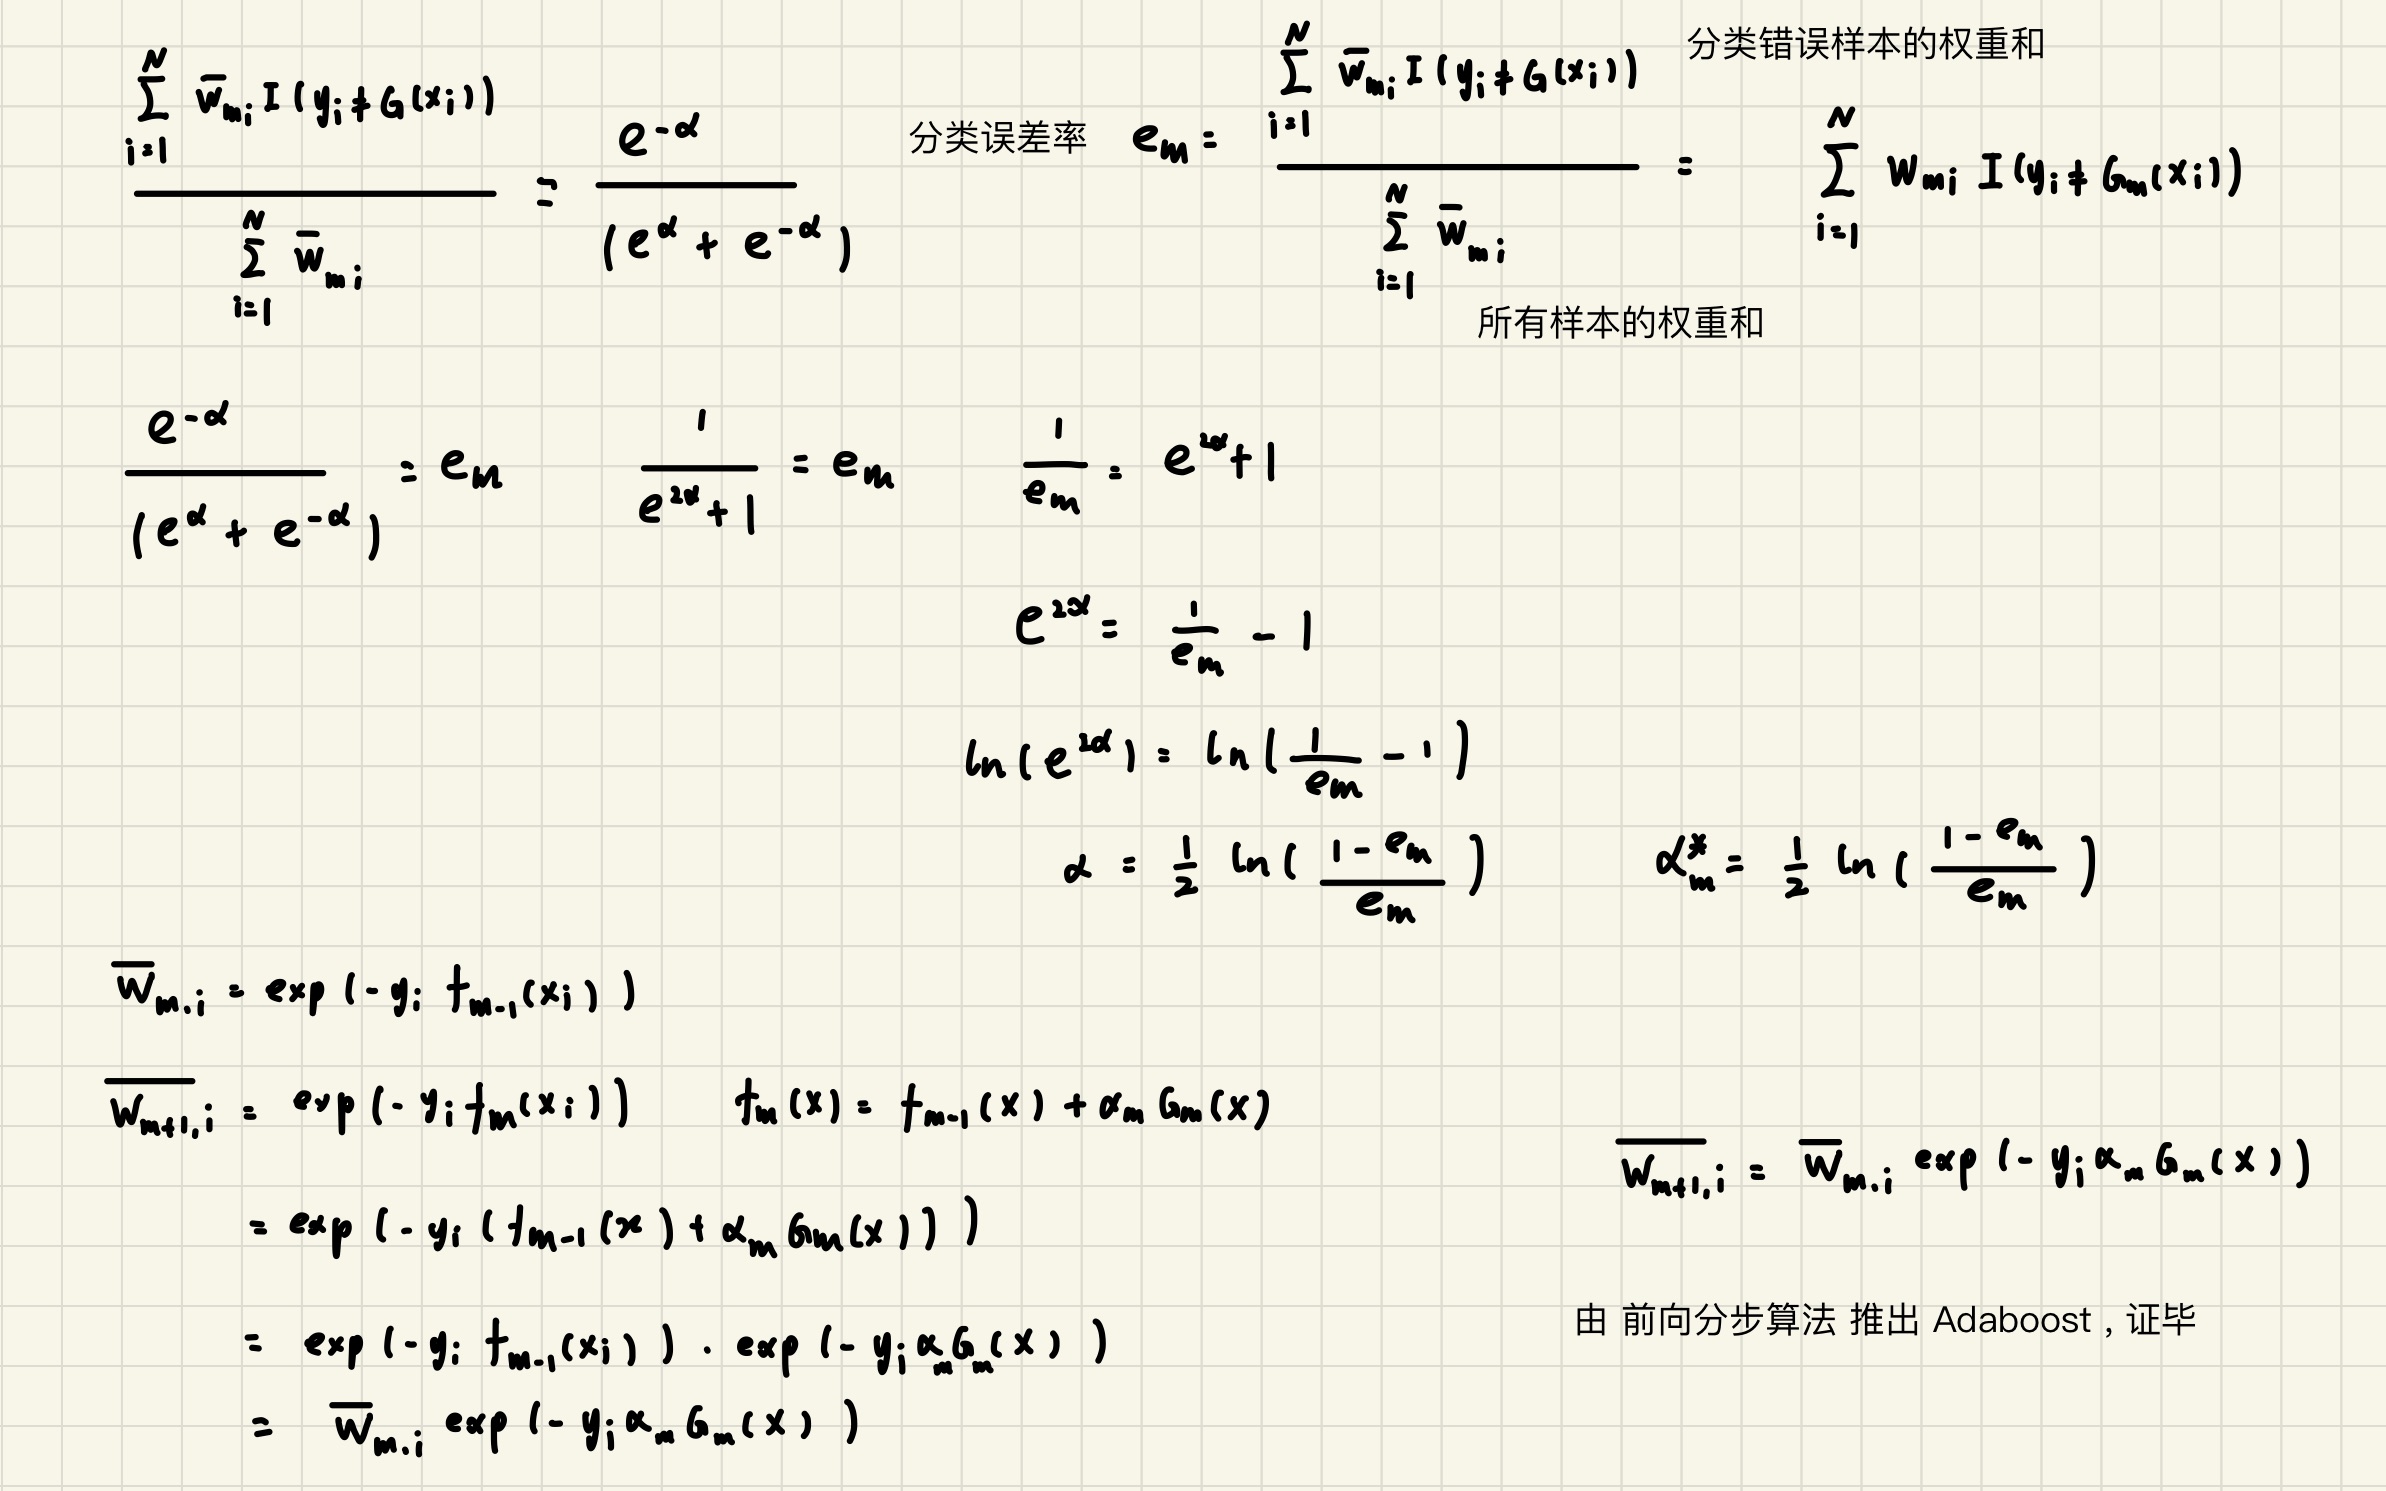 分类错误样本的权重和
\frac{\sum_{i=1}^{N} \overline{w}_{mi} I(y_i ≠ G(x_i))}{\sum_{i=1}^{N} \overline{w}_{mi}} = \frac{e^{-α}}{(e^{α} + e^{-α})}
分类误差率 e_m = \frac{\sum_{i=1}^{N} \overline{w}_{mi} I(y_i ≠ G(x_i))}{\sum_{i=1}^{N} \overline{w}_{mi}} = \sum_{i=1}^{N} w_{mi} I(y_i ≠ G_m(x_i))
所有样本的权重和
\frac{e^{-α}}{(e^{α} + e^{-α})} = e_m
\frac{1}{e^{2α}+1} = e_m
\frac{1}{e_m} = e^{2α}+1
e^{2α} = \frac{1}{e_m} - 1
ln(e^{2α}) = ln(\frac{1}{e_m} - 1)
α = \frac{1}{2} ln(\frac{1-e_m}{e_m})
α_m^* = \frac{1}{2} ln(\frac{1-e_m}{e_m})
\overline{w}_{m.i} = exp(-y_i f_{m-1}(x_i))
\overline{w_{m+1,i}} = exp(-y_i f_m(x_i))
f_m(x) = f_{m-1}(x) + α_m G_m(x)
= exp(-y_i (f_{m-1}(x) + α_m G_m(x)))
= exp(-y_i f_{m-1}(x_i)) · exp(-y_i α_m G_m(x))
= \overline{w}_{m.i} exp(-y_i α_m G_m(x))
\overline{w_{m+1,i}} = \overline{w}_{m.i} exp(-y_i α_m G_m(x))
由 前向分步算法 推出 Adaboost，证毕